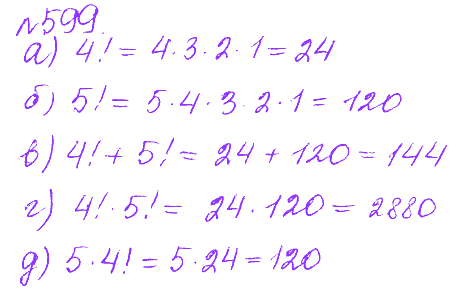 №599.
а) 4! = 4·3·2·1 = 24
б) 5! = 5·4·3·2·1 = 120
в) 4! + 5! = 24 + 120 = 144
г) 4! · 5! = 24 · 120 = 2880
д) 5·4! = 5·24 = 120